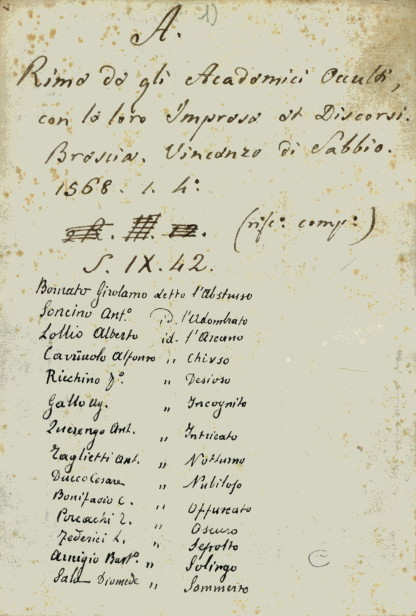 A. 1)
Rime de gli Academici Occulti,
con le loro Imprese et Discorsi.
Brescia. Vincenzo di Sabbio.
1568. 1. 4°.
(rifᵉ: compᵉ:)
S. IX. 42.
Bornato Girolamo detto l'Abstruso
Soncino Antº id. l'Adombrato
Lollio Alberto id. l'Arcano
Cavriuolo Alfonso " Chiuso
Ricchino Fº. " Desioso
Gallo Ag. " Incognito
Querengo Ant. " Intricato
Taglietti Ant. " Notturno
Ducco Cesare " Nubiloso
Bonifacio C. " Offuscato
Porcachi T. " Oscuro
Federici L. " Sepolto
Arnigio Bartº. " Solingo
Sala Diomede " Sommerso
C